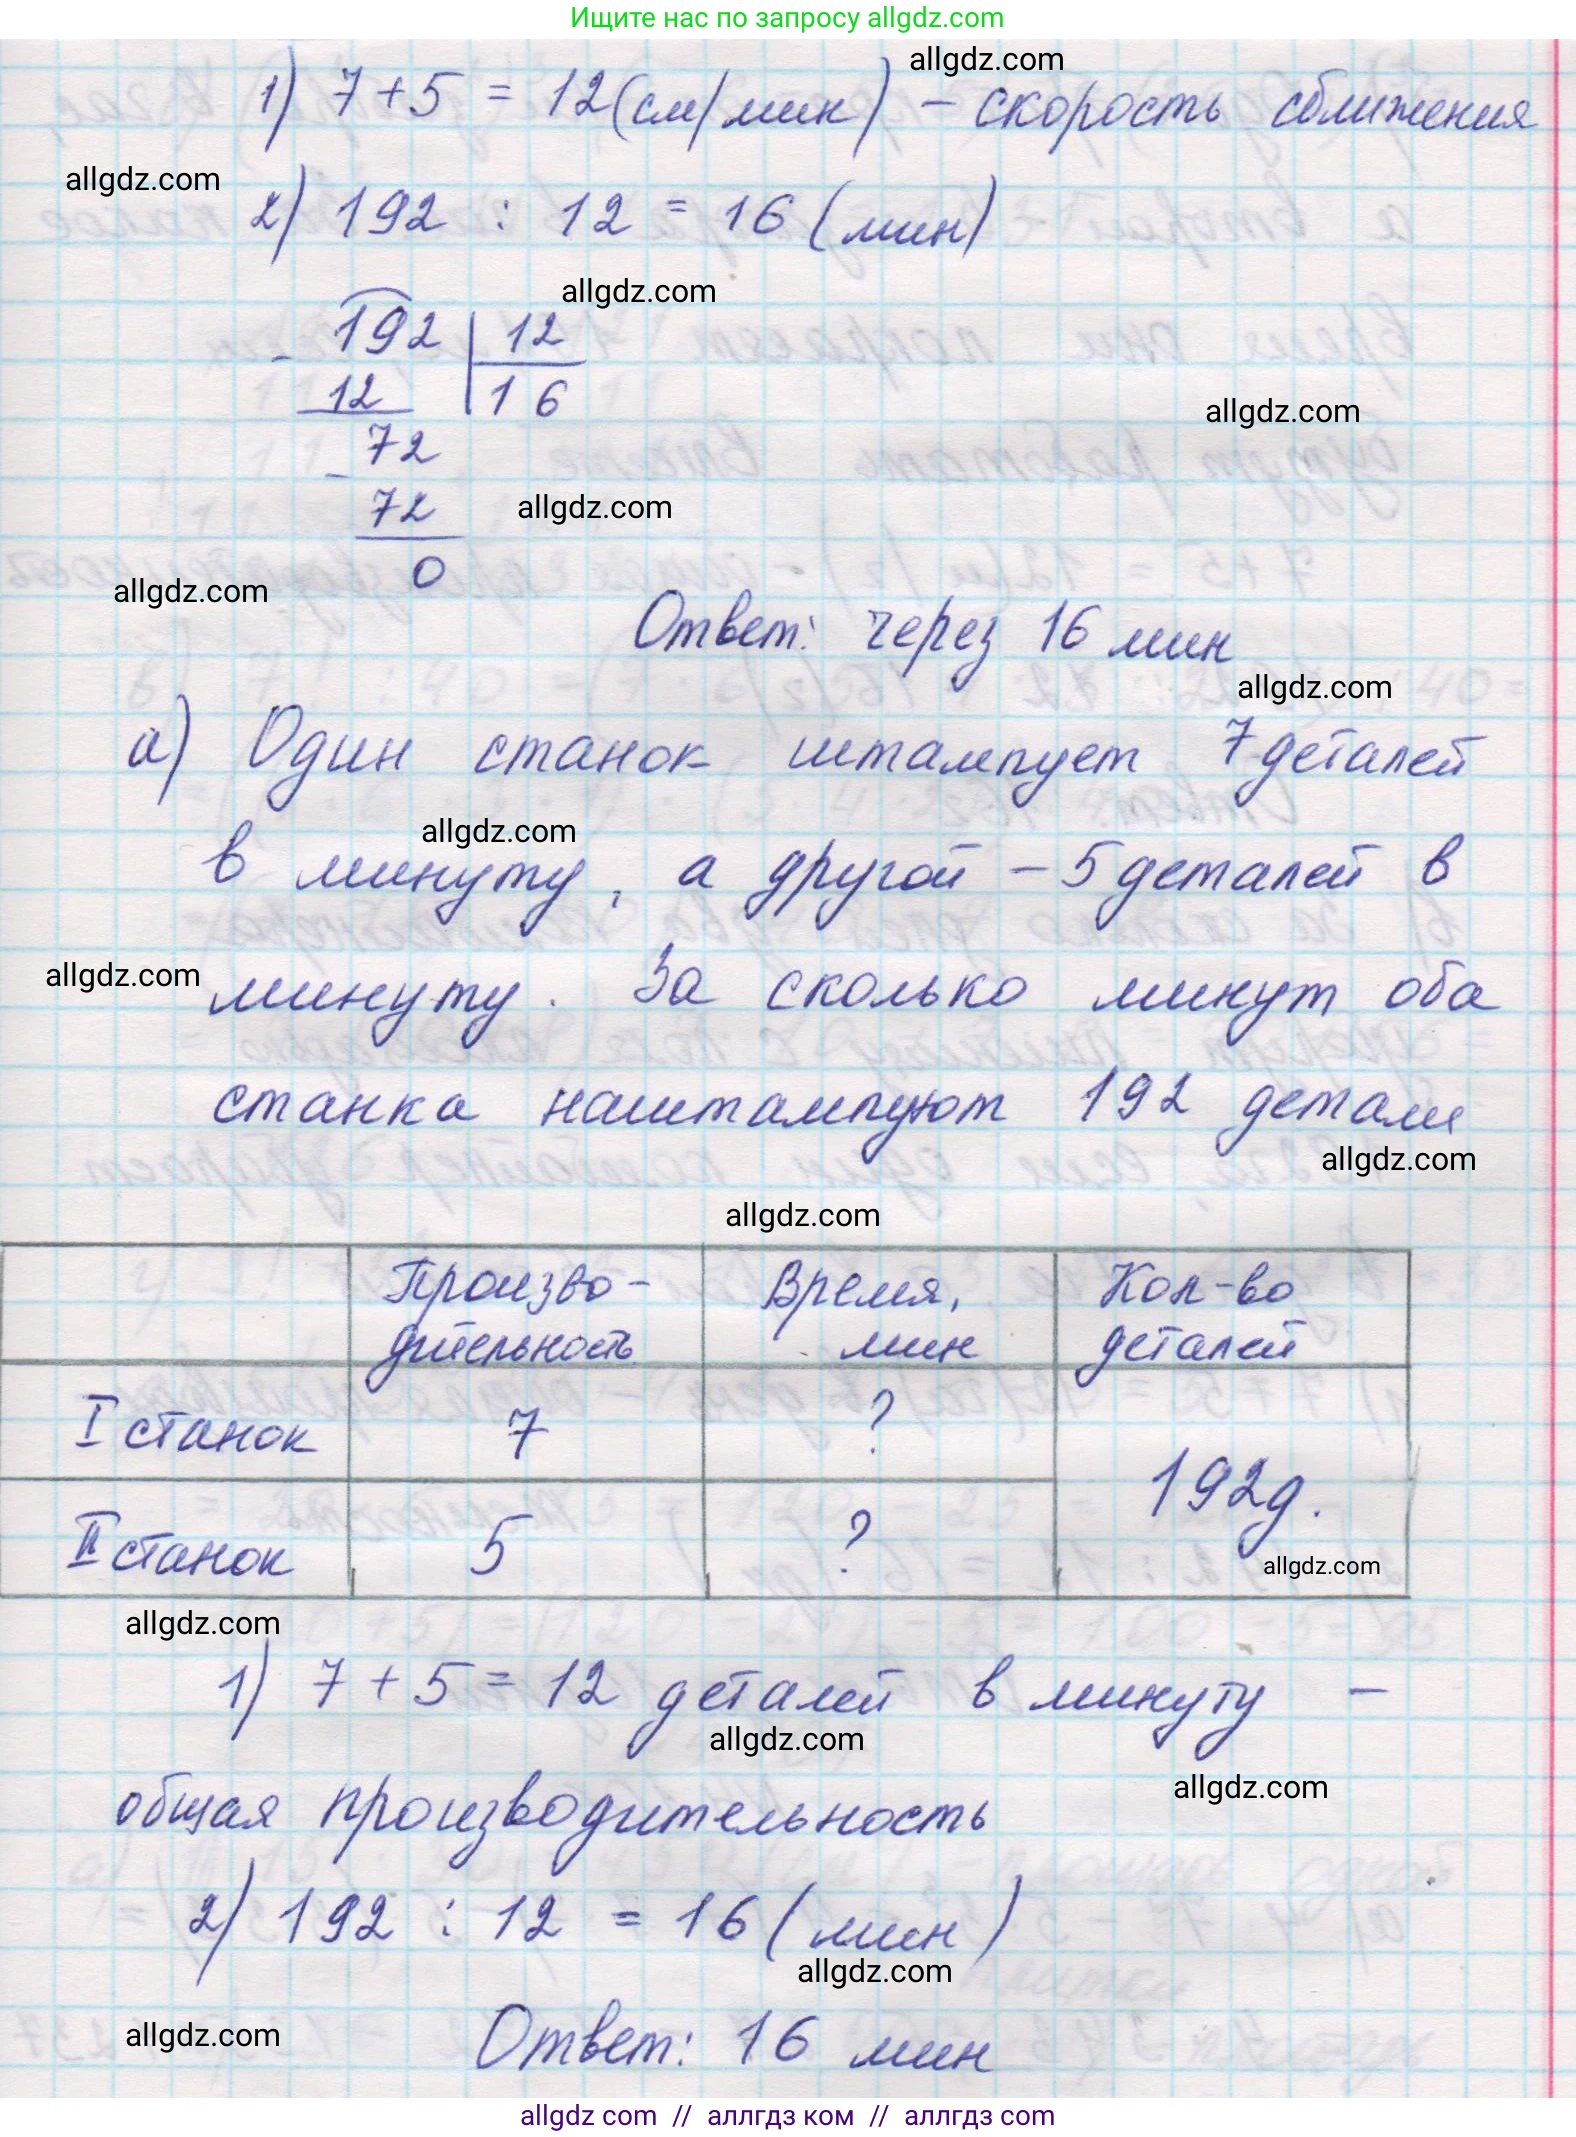 Ищите нас по запросу allgdz.com
allgdz.com
1) 7 + 5 = 12 (см/мин) – скорость сближения
allgdz.com
2) 192 : 12 = 16 (мин)
allgdz.com
- 192 | 12
12 | 16
allgdz.com
- 72
72
allgdz.com
0
allgdz.com
Ответ: через 16 мин
allgdz.com
а) Один станок штампует 7 деталей
allgdz.com
в минуту, а другой – 5 деталей в
allgdz.com
минуту. За сколько минут оба
станка наштампуют 192 детали
allgdz.com
allgdz.com
Произво- Время, Кол-во
дительность мин деталей
I станок 7 ?
192 д.
II станок 5 ?
allgdz.com
allgdz.com
1) 7 + 5 = 12 деталей в минуту –
allgdz.com
allgdz.com
общая производительность
2) 192 : 12 = 16 (мин)
allgdz.com
allgdz.com
Ответ: 16 мин
allgdz com // аллгдз ком // аллгдз.com